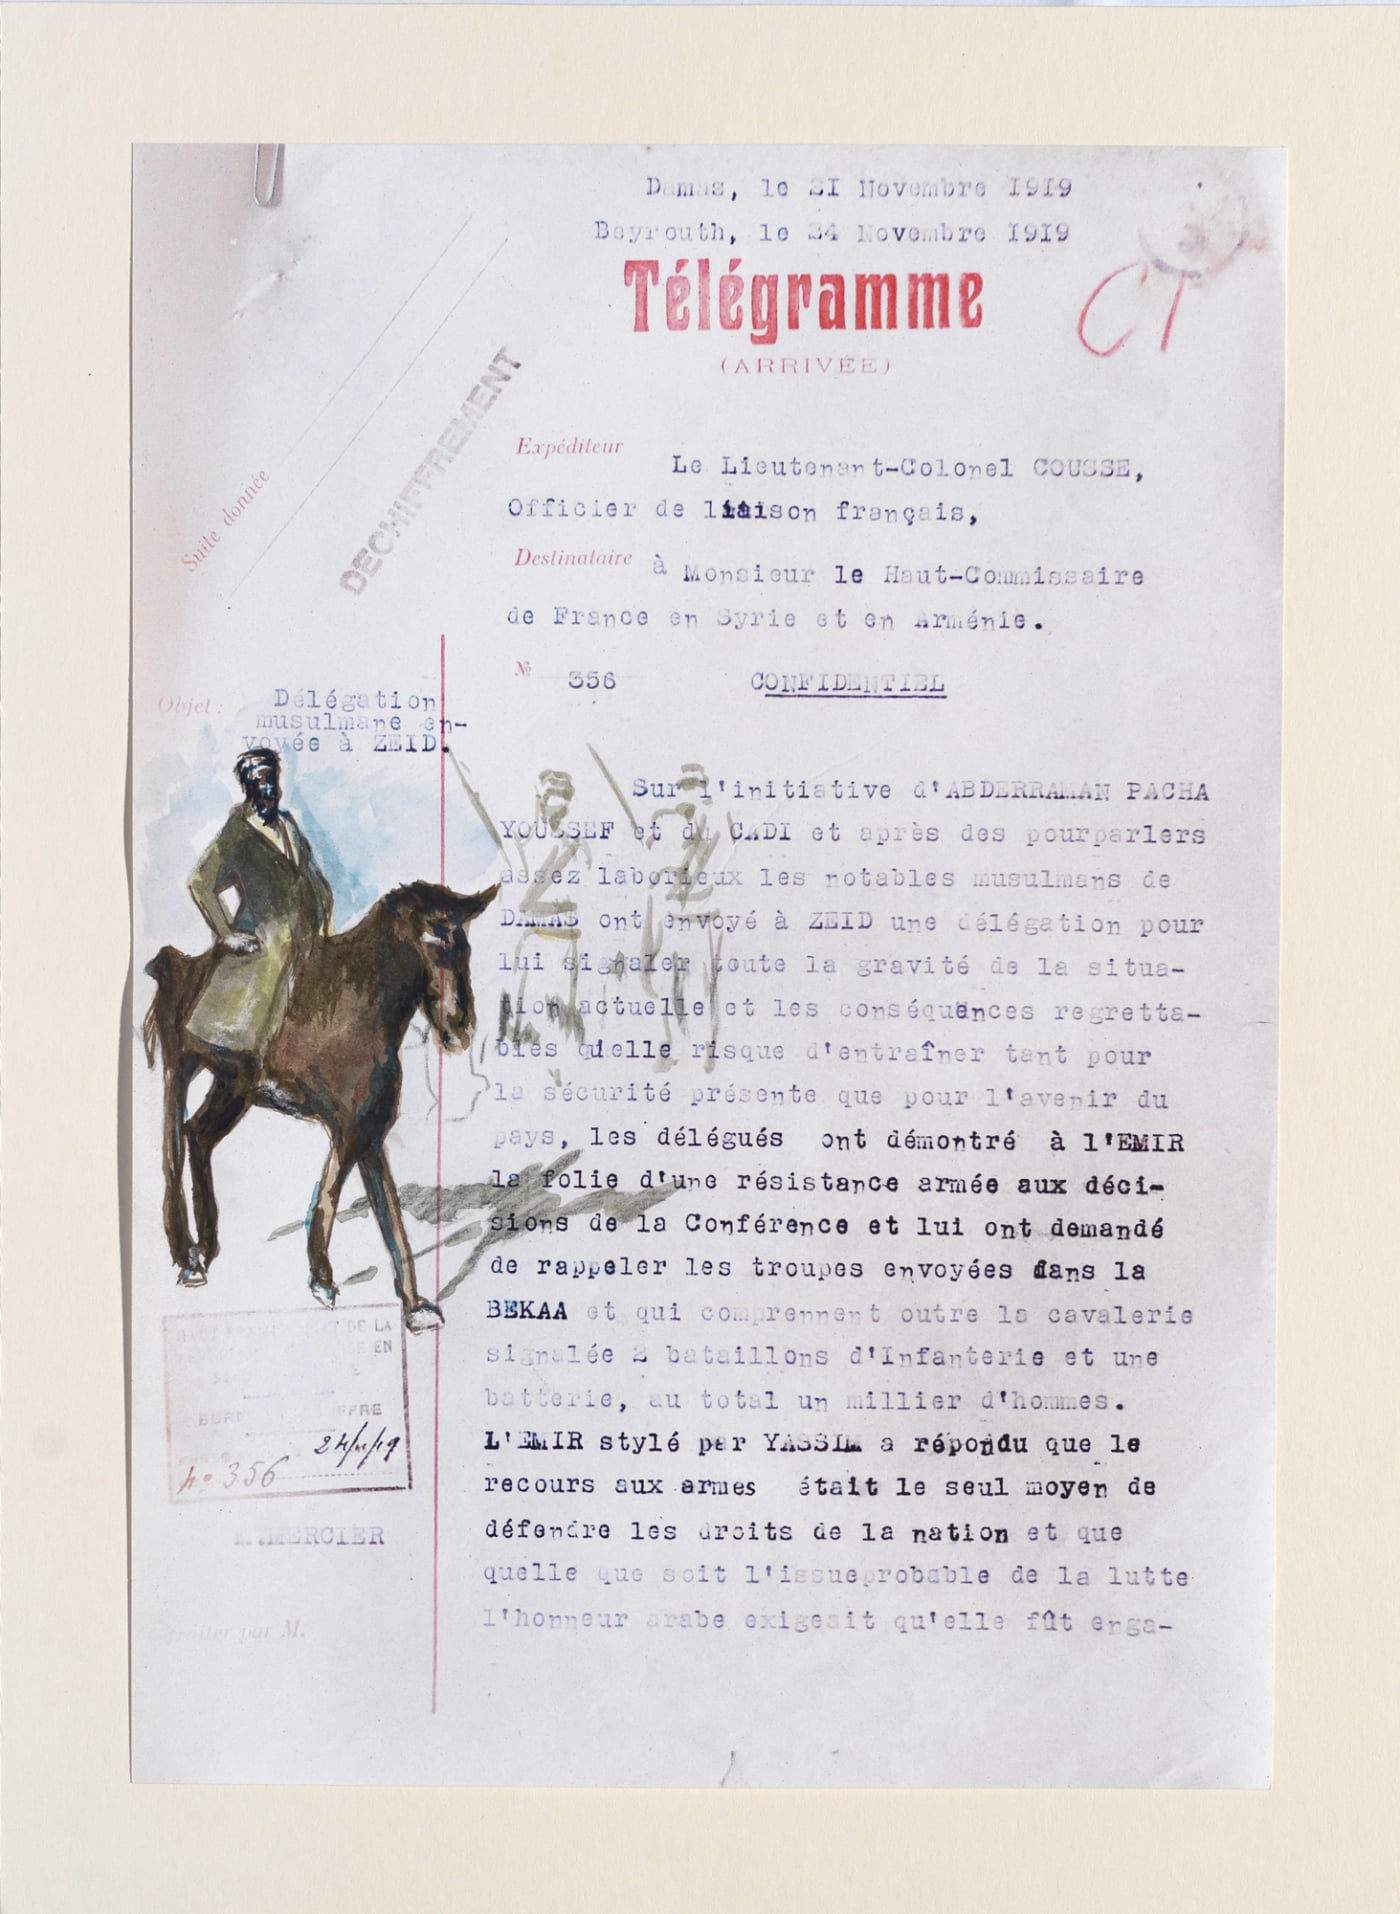 Damas, le 21 Novembre 1919
Beyrouth, le 24 Novembre 1919
Télégramme
(ARRIVÉE)
CT
DECHIFFREMENT
Suite donnée
Expéditeur
Le Lieutenant-Colonel COUSSE,
Officier de liaison français,
Destinataire
à Monsieur le Haut-Commissaire
de France en Syrie et en Arménie.
№ 356 CONFIDENTIEL
Objet : Délégation
musulmane en-
voyée à ZEID.
Sur l'initiative d'ABDERRAMAN PACHA
YOUSSEF et du CADI et après des pourparlers
assez laborieux les notables musulmans de
DAMAS ont envoyé à ZEID une délégation pour
lui signaler toute la gravité de la situa-
tion actuelle et les conséquences regretta-
bles qu'elle risque d'entraîner tant pour
la sécurité présente que pour l'avenir du
pays, les délégués ont démontré à l'EMIR
la folie d'une résistance armée aux déci-
sions de la Conférence et lui ont demandé
de rappeler les troupes envoyées dans la
BEKAA et qui comprennent outre la cavalerie
signalée 2 bataillons d'Infanterie et une
batterie, au total un millier d'hommes.
L'EMIR stylé par YASSIM a répondu que le
recours aux armes était le seul moyen de
défendre les droits de la nation et que
quelle que soit l'issueprobable de la lutte
l'honneur arabe exigeait qu'elle fût enga-
DE LA
EN
24/11/19
No 356
M.MERCIER
traiter par M.